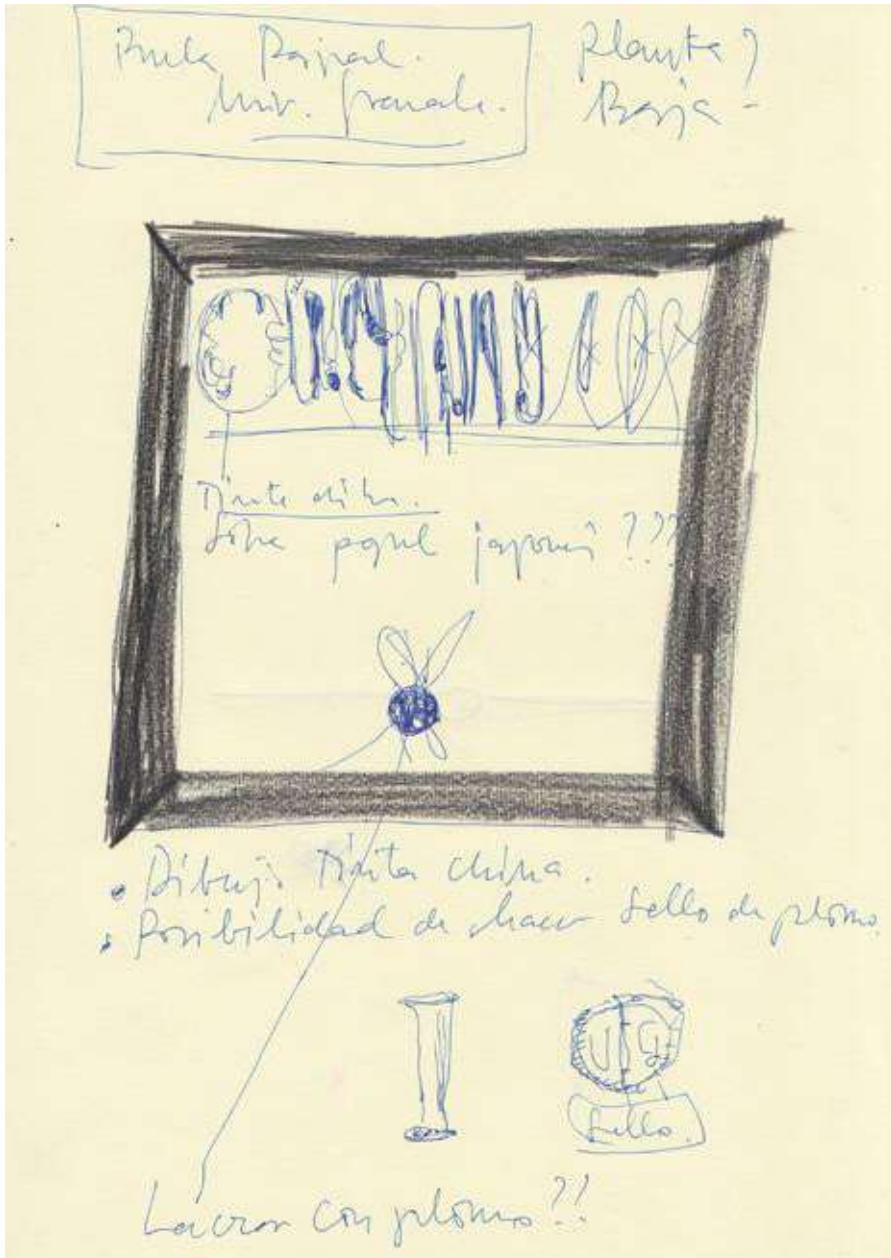 Bula Papal.
Univ. Granada.
Planta?
Baja -
Tinta china.
Sobre papel japonés ???
• Dibujo Tinta china.
• Posibilidad de hacer sello de plomo.
U G
Sello.
Lacrar con plomo??